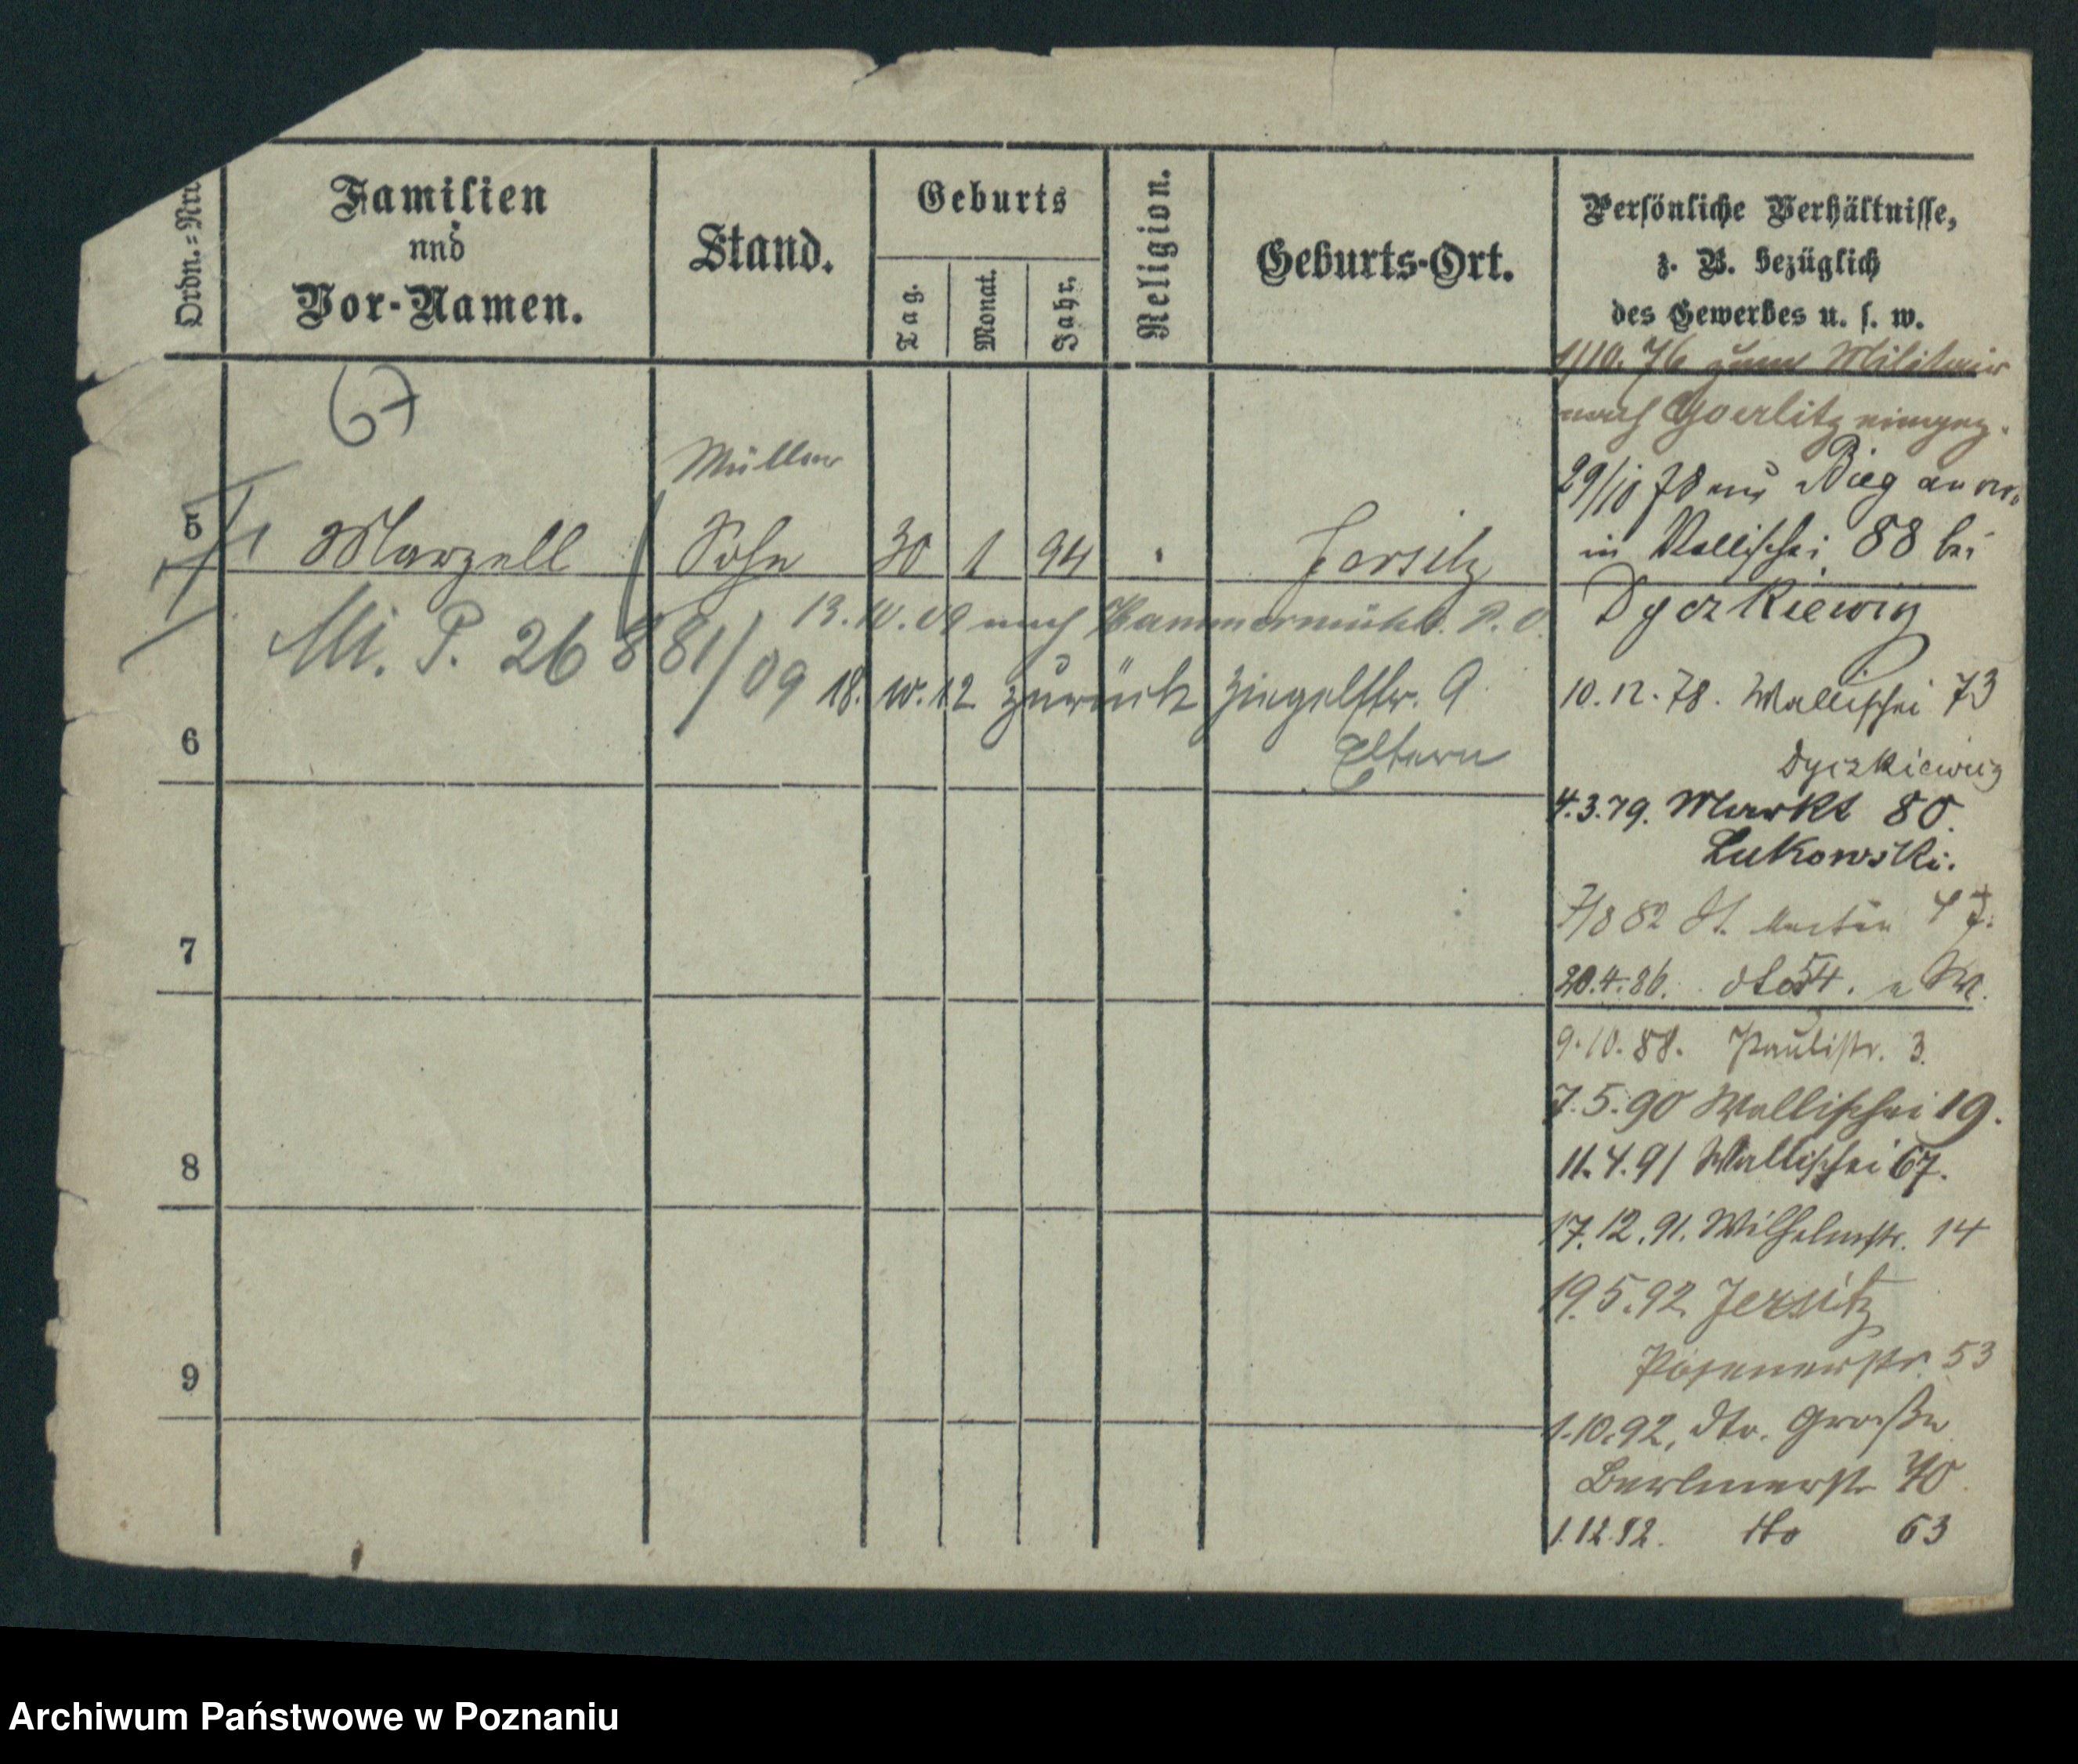 Ordn.=Nr.
Familien
und
Vor-Namen.
Stand.
Geburts
Tag.
Monat.
Jahr.
Religion.
Geburts-Ort.
Persönliche Verhältnisse,
z. B. bezüglich
des Gewerbes u. s. w.
67
5
Marzell
Müller
Sohn
30
1
94
Jersitz
Mi. P. 26 881/09
13.10.09 nach Hammermühle P. O.
18. 10. 12 zurück Ziegelstr. 9
Eltern
6
7
8
9
1/10. 76 zum Militair
nach Goerlitz eingez.
29/10 78 aus
in Wallischei 88 bei
Dyczkiewicz
10. 12. 78. Wallischei 73
Dyczkiewicz
4.3.79. Markt 80.
Lukowski.
7/8 82 St. Martin 47.
20.4.86. dto 54.
9.10.88. Paulistr. 3.
7.5.90 Wallischei 19.
11.4.91 Wallischei 67.
17.12.91. Wilhelmstr. 14
19.5.92 Jersitz
Posenerstr. 53
1.10.92. dto. Große
Berlinerstr 70
1.12.92. dto 63
Archiwum Państwowe w Poznaniu